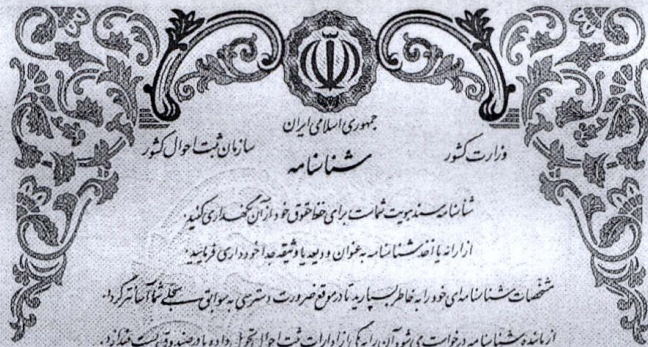 جمهوری اسلامی ایران
وزارت کشور
سازمان ثبت احوال کشور
شناسنامه
شناسنامه سند هویت شماست برای حفظ حقوق خود از آن نگهداری کنید.
از ارائه یا أخذ شناسنامه به عنوان ودیعه یا وثیقه جداً خودداری فرمائید.
مشخصات شناسنامه‌ای خود را به خاطر بسپارید تا در موقع ضرورت دسترسی به سوابق سجلی شما آسانتر گردد.
از یابنده شناسنامه درخواست می‌شود آن را به یکی از ادارات ثبت احوال تحویل داده یا در صندوق پست بیندازد.